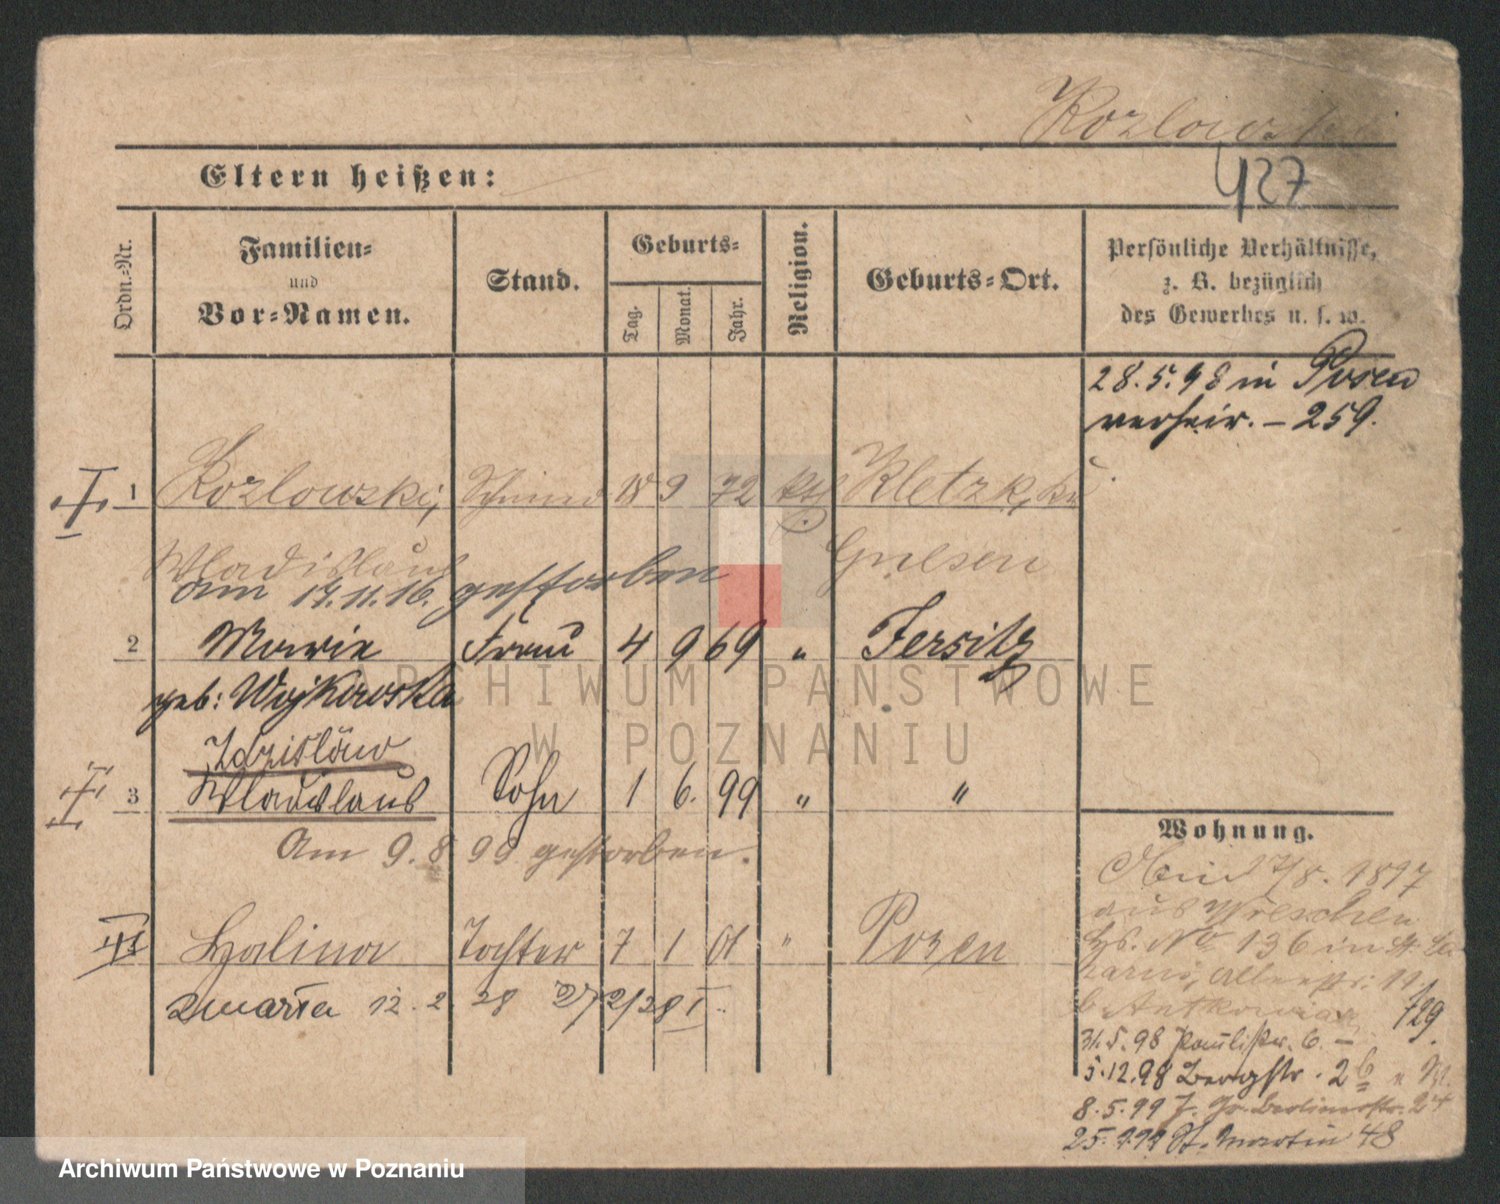 Kozlowski
427
Eltern heißen:
Ordn.-Nr.
Familien-
und
Vor-Namen.
Stand.
Geburts-
Tag.
Monat.
Jahr.
Religion.
Geburts-Ort.
Persönliche Verhältnisse,
z. B. bezüglich
des Gewerbes u. s. w.
28.5.98 in Posen
verheir. – 259.
I 1 Kozlowski, 9 72 kth Kletzko,
Wladislaus Gnesen
am 17.11.16. gestorben
2 Marie Frau 4 9 69 " Jersitz
geb: Wojkowska
Zdzislaw
I 3 Wladislaus Sohn 1 6. 99 " "
Am 9.8 99 gestorben.
III Halina Tochter 7 1 01 " Posen
zmarła 12.2 28 27/2/28 I
Wohnung.
7/8. 1897
aus Wreschen
No 136 in St.
11
b. Antkowiak 729
31.5.98 Paulistr. 6. –
5.12.98 Bergstr. 2b
8.5.99 J. Gr. Berlinerstr. 24
St. Martin 48
ARCHIWUM PAŃSTWOWE
W POZNANIU
Archiwum Państwowe w Poznaniu